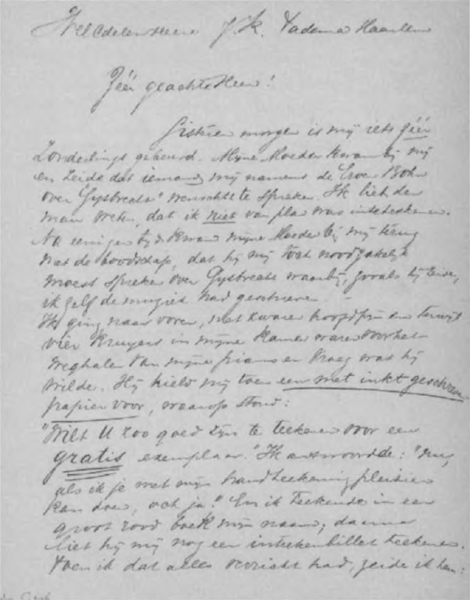 WelEdelenHeere J. K. Tadema Haarlem
Zéér geachte Heer!
Gisteren morgen is mij iets zéér
Zonderlings gebeurd. Mijne Moeder kwam bij mij
en zeide dat iemand mij namens de Erven Bohn
over "Gysbreght" wenschte te spreken. Ik liet den
man weten, dat ik niet van plan was inteteekenen.
Na eenigen tijd kwam mijne Moeder bij mij terug
met de boodschap, dat hij mij toch noodzakelijk
moest spreken over Gysbreght waarbij, zooals hij zeide,
ik zelf de muziek had geschreven.
Ik ging naar voren, met zware hoofdpijn en terwijl
vier kruyers in mijne kamer waren voor het
weghalen van mijne piano en vroeg wat hij
wilde. Hij hield mij toen een met inkt geschreven
papier voor, waarop stond:
"Wilt U zoo goed zijn te teekenen voor een
gratis exemplaar." Ik antwoordde: "Nu,
als ik je met mijn handteekening pleizier
kan doen, och ja." En ik teekende in een
groot rood boek mijn naam; daarna
liet hij mij nog een inteekenbillet teekenen.
Toen ik dat alles verricht had, zeide ik hem: